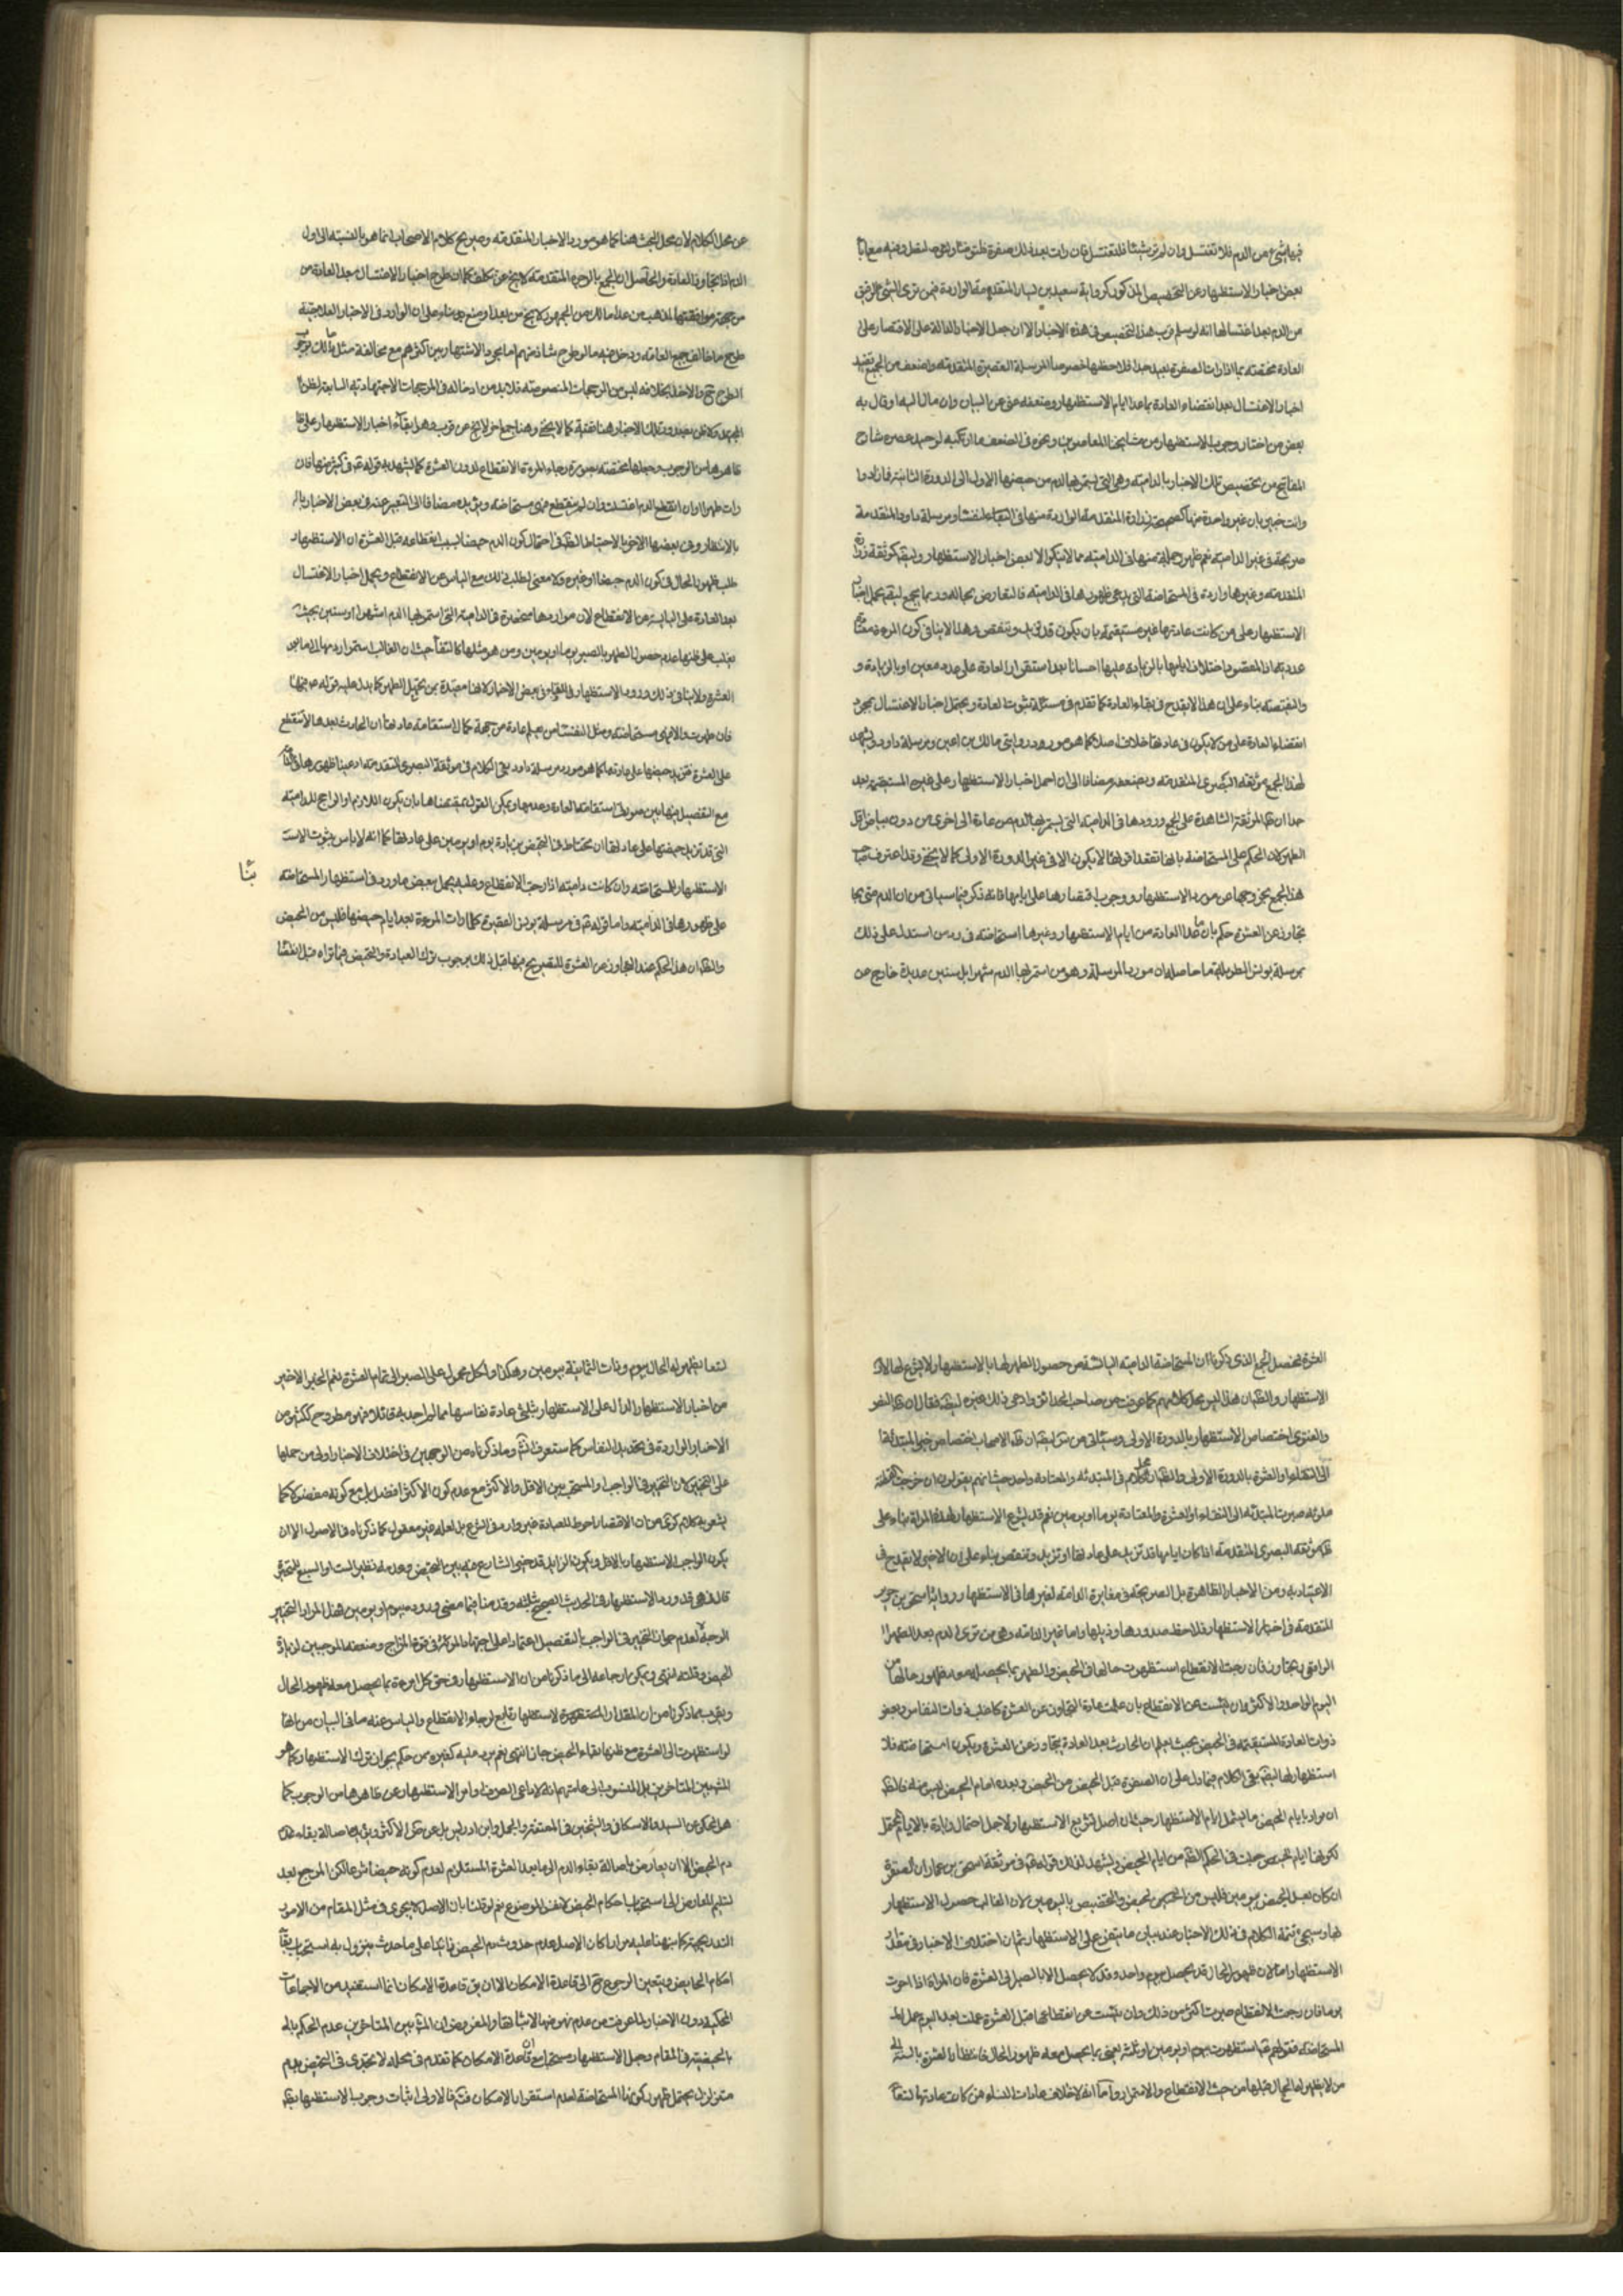 فيها شئ من الدم فلا تغتسل وان لم تر شيئا فلتغتسل فان رات بعد ذلك صفرة فلتتوضأ ولتصل
بعض اخبار الاستظهار عن التخصيص المذكور كرواية سعيد بن يسار المتقدمة الواردة فيمن ترى الشئ الرقيق
من الدم بعد اغتسالها انه لو سلم قرب هذا التخصيص في هذه الاخبار الا ان حمل الاخبار الدالة على الاقتصار على
العادة مختصة بما اذا رات الصفرة بعيد جدا فلاحظها خصوصا المرسلة القصيرة المتقدمة واضعف من الجمع تقييد
اخبار الاغتسال بعد انقضاء العادة بما عدا ايام الاستظهار وضعفه غني عن البيان وان مال اليه او قال به
بعض من اختار وجوب الاستظهار من مشايخنا المعاصرين ونحوه في الضعف ما ارتكبه الوحيد في شرح
المفاتيح من تخصيص تلك الاخبار بالدامية وهي التي يستمر بها الدم من حيضها الاول الى الدورة الثانية فما زاد
وانت خبير بان غير واحدة منها كصحيحة زرارة المتقدمة الواردة منها في النفساء ومرسلة داود المتقدمة
صريحة في غير الدامية نعم ظهور جملة منها في الدامية مما لا ينكر الا ان بعض اخبار الاستظهار ايضا كموثقة زرارة
المتقدمة وغيرها واردة في المستحاضة التي يدعى ظهورها في الدامية فالتعارض بحاله وربما يجمع ايضا بحمل اخبار
الاستظهار على من كانت عادتها غير مستقيمة بان يكون قد تزيد وتنقص وهذا لا ينافي كون المرءة معتادة
عددية اذ المقصود اختلاف ايامها بالزيادة عليها احسانا بعد استقرار العادة على عدد معين او بالزيادة و
والنقيصة بناء على ان هذا لا يقدح في بقاء العادة كما تقدم في مسئلة ثبوت العادة ويحمل اخبار الاغتسال بمجرد
انقضاء العادة على من لا يكون في عادتها خلاف اصلا كما هو مورد روايتي مالك بن اعين ومرسلة داود ويشهد
لهذا الجمع موثقة البصري المتقدمة ويضعف مضافا الى ان حمل اخبار الاستظهار على غير المستقيمة بعيد
جدا ان ظ الموثقة الشاهدة على الجمع ورودها في الدامية التي يستمر بها الدم من عادة الى اخرى من دون بياض اقل
الطهر لان الحكم على المستحاضة بانها تقعد اقرائها لا يكون الا في غير الدورة الاولى كما لا يخفى وقد اعترف صاحب
هذا الجمع بخروجها عن مورد الاستظهار ووجوب اقتصارها على ايامها فانه ذكر فيما سياتي من ان الدم متى
تجاوز عن العشرة حكم بان ما عدا العادة من ايام الاستظهار وغيرها استحاضة في رد من استدل على ذلك
بمرسلة يونس الطويلة ما حاصله ان مورد المرسلة وهو من استمر بها الدم شهرا بل سنين عديدة خارج عن
عن محل الكلام لان محل البحث هنا كما هو مورد الاخبار المتقدمة وصريح كلام الاصحاب انما هو بالنسبة الى اول
الدم اذا تجاوز العادة والحاصل ان الجمع بالوجوه المتقدمة كلا يخ عن تكلف كما ان طرح اخبار الاغتسال بعد العادة من
من جهة موافقتها لمذهب من عدا مالك من الجمهور كلا يخ من بعد او منع بناء على ان الوارد في الاخبار العلاجية
طرح ما خالف جميع العامة ودخل فيه ما لو طرح شاذ منهم اما مجرد الاشتهار بين اكثرهم مع مخالفة مثل مالك
الطرح ح والاخذ بخلافه ليس من المرجحات المنصوصة فلا بد من ادخاله في المرجحات الاجتهادية التابعة لظن
المجتهد وكلا ظن بعيد ورود تلك الاخبار هنا تقية كما لا يخفى وهنا جمع اخر لا يخ عن قرب وهو ابقاء اخبار الاستظهار على
ظاهرها من الوجوب وجعلها مختصة بصورة رجاء المرءة الانقطاع لدون العشرة كما يشهد به قوله ع في كثير منها فان
رات طهرا او ان انقطع الدم اغتسلت وان لم ينقطع فهي مستحاضة ويؤيده مضافا الى التعبير عنه في بعض الاخبار بالا
بالانتظار وفي بعضها الاخر بالاحتياط الظ في احتمال كون الدم حيضا بسبب انقطاعه قبل العشرة ان الاستظهار
طلب ظهور الحال في كون الدم حيضا او غيره ولا معنى لطلب ذلك مع الياس عن الانقطاع ويحمل اخبار الاغتسال
بعد العادة على اليائسة من الانقطاع لان مواردها منحصرة في الدامية التي استمر بها الدم اشهرا او سنين بحيث
يغلب على ظنها عدم حصول الطهر بالصبر يوما او يومين ومن هو مثلها كالنفساء حيث ان الغالب استمرار دمها الى ما بعد
العشرة ولا ينافي ذلك ورود الاستظهار في النفساء في بعض الاخبار لانها مقيدة بمن يحتمل الطهر كما يدل عليه قوله ع فيها
فان طهرت والا فهي مستحاضة ومثل النفساء من يعلم عادة من جهة كمال استقامة عادتها ان الحادث بعدها لا ينقطع
على العشرة فمن يزيد حيضها على عادتها كما هو مورد مرسلة داود بقي الكلام في موثقة البصري المتقدمة ادعينا ظهورها في
مع التفصيل فيها بين صورتي استقامة العادة وعدمها ويمكن القول بمقتضاها بان يكون اللازم او الراجح للدامية
التي قد تزيد حيضتها على عادتها ان تحتاط في التحيض بزيادة يوم او يومين على عادتها كما انه لا باس بثبوت الاست
الاستظهار للمستحاضة وان كانت دامية اذا رجت الانقطاع وعليه يحمل بعض ما ورد في استظهار المستحاضة
على ظهورها في الدامية واما قوله ع في مرسلة يونس القصيرة كلما رات المرءة بعد ايام حيضها فليس من الحيض
والظ ان هذا الحكم عند التجاوز عن العشرة للتصريح فيها قبل ذلك بوجوب ترك العبادة والتحيض فيما تراه قبل انقضاء
العشرة فحصل الجمع الذي ذكرنا ان المستحاضة الدامية اليائسة من حصول الطهر لها بالاستظهار لا يشرع لها الا
الاستظهار والظ ان هذا ليس محل كلامهم كما عرفت من صاحب الحدائق وادعى ذلك غيره ايضا فقال ان ظ النص
والفتوى اختصاص الاستظهار بالدورة الاولى وسيأتي من ايضا ان ظ الاصحاب اختصاص خبر المبتدئة
الى النفساء والعشرة بالدورة الاولى والظ ان كلامهم في المبتدئة والمعتادة واحد حيث انهم يقولون ان خرجت القطنة
ملوثة صبرت المبتدئة الى النقاء او العشرة والمعتادة يوما او يومين نعم قد يشرع الاستظهار لهذه المراة بناء على
ظ موثقة البصري المتقدمة اذا كان ايامها قد تزيد على عادتها او تزيد وتنقص بناء على ان الاخير لا يقدح في
الاعتياد به ومن الاخبار الظاهرة بل الصريحة في مغايرة الدامية لغيرها في الاستظهار رواية اسحق بن جرير
المتقدمة في اخبار الاستظهار فلاحظ صدرها وذيلها واما غير الدامية وهي من ترى الدم بعد الطهر
الواقعي ويتجاوز فان رجت الانقطاع استظهرت حالها في الحيض والطهر بما يحصل معه ظهور حالها من
اليوم الواحد والاكثر وان يئست من الانقطاع بان علمت عادة التجاوز عن العشرة كاغلب ذوات النفاس وبعض
ذوات العادة المستقيمة في الحيض بحيث يعلم ان الحادث بعد العادة يتجاوز عن العشرة ويكون استحاضة فلا
استظهار لها ايضا بقي الكلام فيما دل على ان الصفرة قبل الحيض من الحيض وبعد ايام الحيض ليس منه فالظ
ان المراد بايام الحيض ما يشمل ايام الاستظهار حيث ان اصل تشريع الاستظهار لاجل احتمال زيادة بالايام
لكونها ايام حيض حيث في الحكم الظ من ايام الحيض ويشهد لذلك قوله ع في موثقة اسحق بن عمار ان الصفرة
ان كان قبل الحيض بيومين فليس من الحيض والتخصيص باليومين لان الغالب حصول الاستظهار
بها وسيجئ تتمة الكلام في ذلك الاخبار عند بيان ما يتفرع على الاستظهار ثم ان اختلاف الاخبار في مقدار
الاستظهار اما لان ظهور الحال قد يحصل بيوم واحد وقد لا يحصل الا بالصبر الى العشرة فان المراة اذا
يوما فان رجت الانقطاع صبرت اكثر من ذلك وان يئست عن انقطاعها قبل العشرة عملت بعد اليوم عمل
المستحاضة فقولهم ع استظهرت بيوم او يومين او ثلثة يعني بما يحصل معه ظهور الحال فانتظار العشرة بالنسبة الى
من لا يظهر لها الحال قبلها من حيث الانقطاع والاستمرار واما لاختلاف عادات النساء فمن كانت عادتها
لتسعا يظهر له الحال بيوم وذات الثمانية بيومين وهكذا والكل محمول على الصبر الى تمام العشرة نعم الخبر الاخير
من اخبار الاستظهار الدال على الاستظهار بثلثي عادة نفاسها مما لم اجد به قائلا فهو مطروح ككثير من
الاخبار الواردة في تحديد النفاس كما ستعرف انش وما ذكرناه من الوجهين في اختلاف الاخبار اولى من حملها
على التخيير لان التخيير في الواجب او المستحب بين الاقل والاكثر مع عدم كون الاكثر افضل بل مع كونه مفضولا كما
يشعر به كلام كرى من ان الاقتصار احوط للعبادة غير وارد في الشرع بل لعله غير معقول كما ذكرناه في الاصول الا ان
يكون الواجب الاستظهار بالاقل ويكون الزايد قد خير الشارع فيه بين التحيض وعدمه نظير الست والسبع للمتحيرة
قال في هى قد ورد الاستظهار في الحديث الصحيح بثلثة وقد منا فيما مضى ورود بيوم او يومين فهل المراد التخيير
الوجه لعدم جواز التخيير في الواجب التفصيل اعتمادا على اجتهاد المرءة في قوة المزاج وضعفه الموجبين لزيادة
الحيض وقلته انتهى ويمكن ارجاعه الى ما ذكرنا من ان الاستظهار في حق كل امرءة بما يحصل معه ظهور الحال
ويقرب مما ذكرنا من ان المقدار الاستظهار تابع لرجاء الانقطاع والياس عنه ما في البيان من انها
لو استظهرت الى العشرة مع ظنها بقاء الحيض جاز انتهى نعم يرد عليه كغيره ممن حكم بجواز ترك الاستظهار كما هو
المش بين المتاخرين بل المنسوب الى عامتهم انه لا داعي الى صرف اوامر الاستظهار عن ظاهرها من الوجوب كما
هو المحكي عن السيد والاسكافي والشيخ في والجمل وابن ادريس بل عن كرى الاكثر ويؤيده اصالة بقاء
دم الحيض الا ان يعارض باصالة بقاء الدم الى ما بعد العشرة المستلزم لعدم كونه حيضا شرعا لكن المرجع بعد
تسليم التعارض الى استصحاب احكام الحيض لا نفس الموضوع نعم لو قلنا بان الاصل لا يجري في مثل المقام من الامور
التدريجية كما نبهنا عليه مرارا كان الاصل عدم حدوث دم الحيض زائدا على ما حدث فيزول به استصحاب بقاء
احكام الحايض ويتعين الرجوع ح الى قاعدة الامكان الا ان يق قاعدة الامكان انما استفيد من الاجماعات
المحكية دون الاخبار لما عرفت من عدم نهوضها لاثباتها والمفروض ان المش بين المتاخرين عدم الحكم
بالحيضية في المقام وجعل الاستظهار مستحبا مع ان قاعدة الامكان كما تقدم في محله لا تجري في التحيض بدم
متزلزل يحتمل ظهور كونها استحاضة لعدم استقرار الامكان فيه فالاولى اثبات وجوب الاستظهار